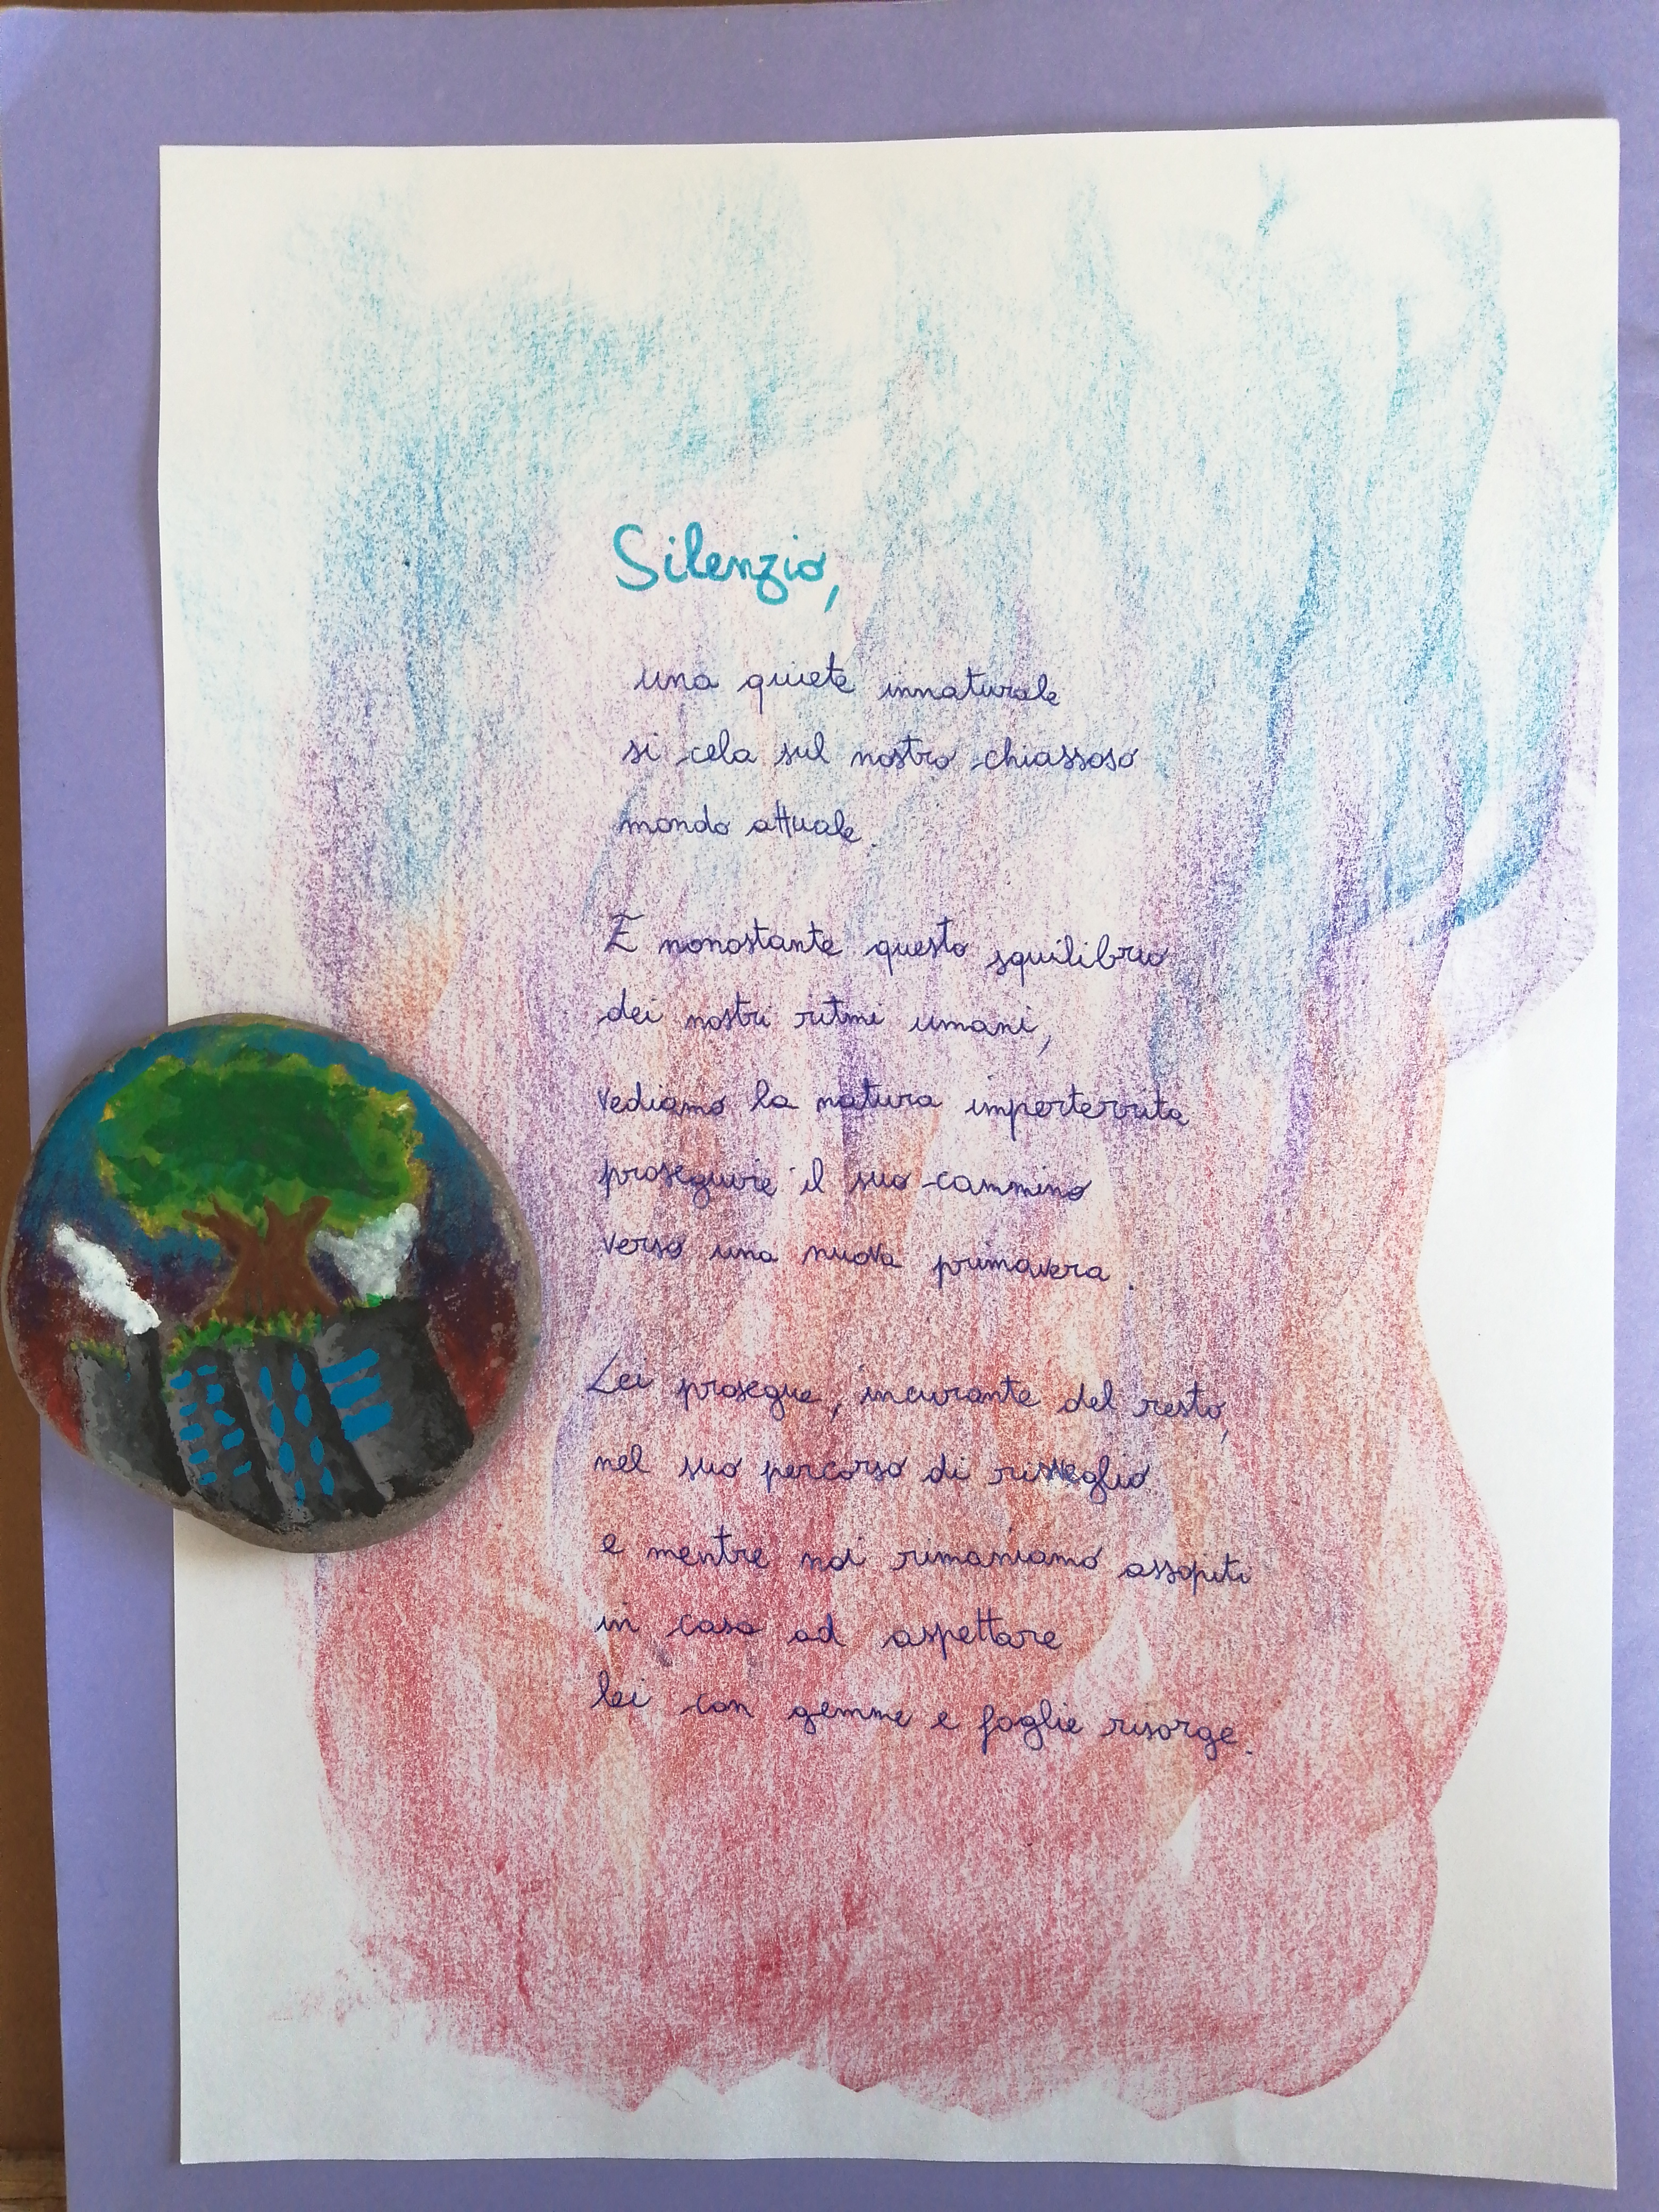 Silenzio,
una quiete innaturale
si cela sul nostro chiassoso
mondo attuale.
E nonostante questo squilibrio
dei nostri ritmi umani,
vediamo la natura imperterrita
proseguire il suo cammino
verso una nuova primavera.
Lei prosegue, incurante del resto,
nel suo percorso di risveglio
e mentre noi rimaniamo assopiti
in casa ad aspettare
lei con gemme e foglie risorge.